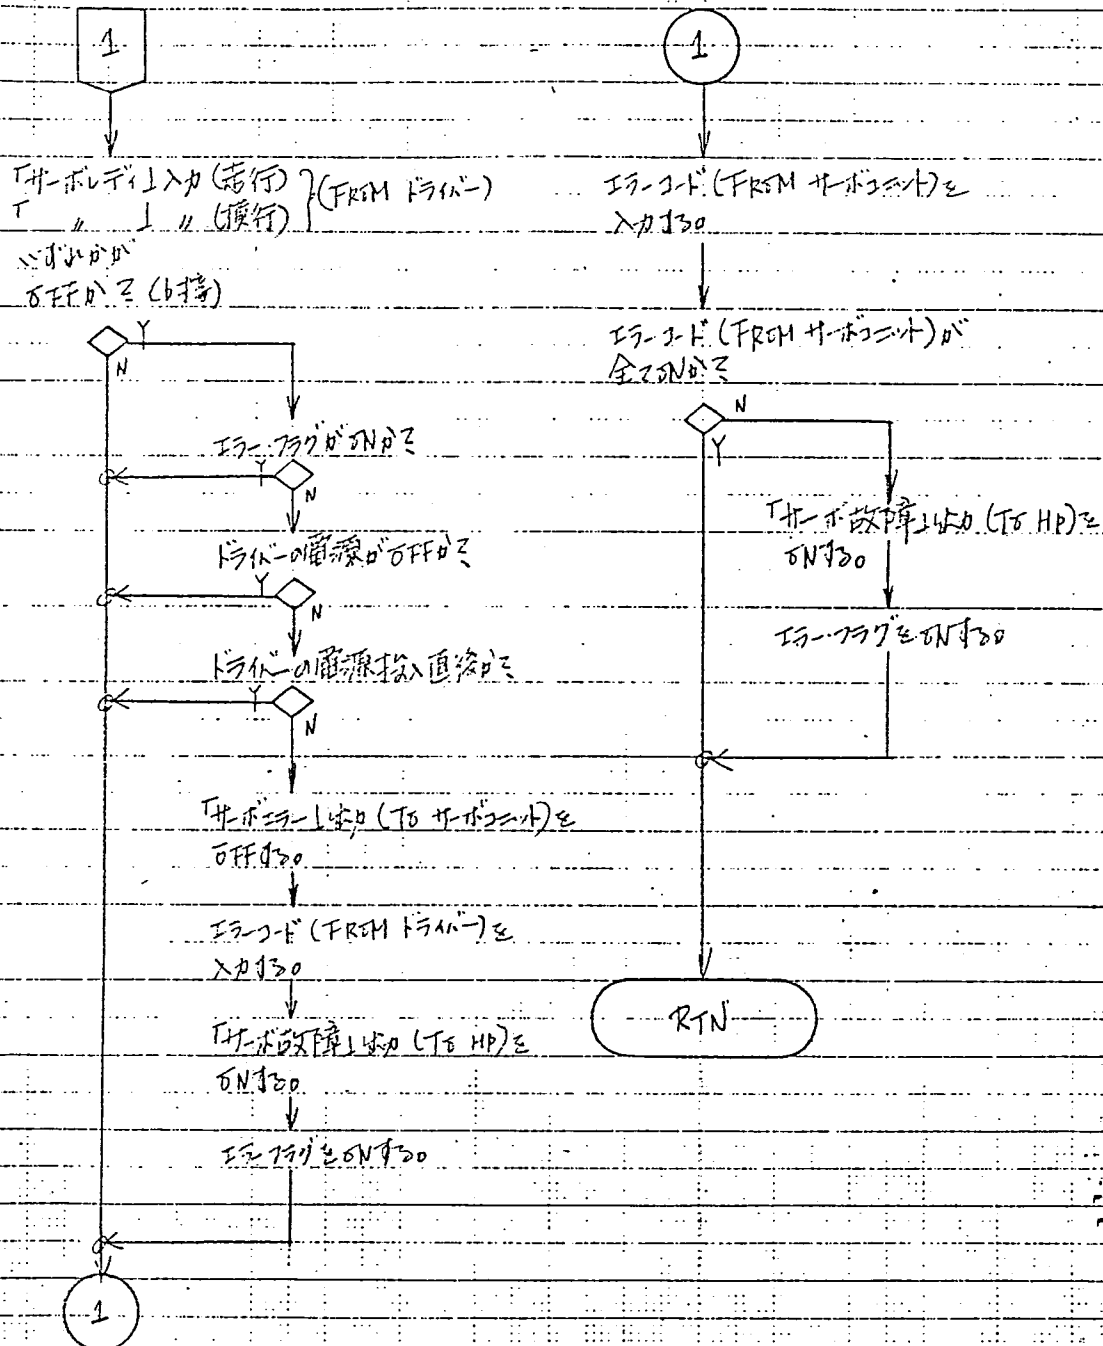 1
「サーボレディ」入力(走行)
「 〃 」 〃 (横行)
(FROM ドライバー)
いずれかが
OFFか? (b接)
Y
N
エラー・フラグがONか?
Y
N
ドライバーの電源がOFFか?
Y
N
ドライバーの電源投入直後か?
Y
N
「サーボエラー」出力(TO サーボユニット)を
OFFする。
エラーコード(FROM ドライバー)を
入力する。
「サーボ故障」出力(TO HP)を
ONする。
エラーフラグをONする。
1
1
エラーコード(FROM サーボユニット)を
入力する。
エラーコード(FROM サーボユニット)が
全てONか?
N
Y
「サーボ故障」出力(TO HP)を
ONする。
エラー・フラグをONする。
RTN